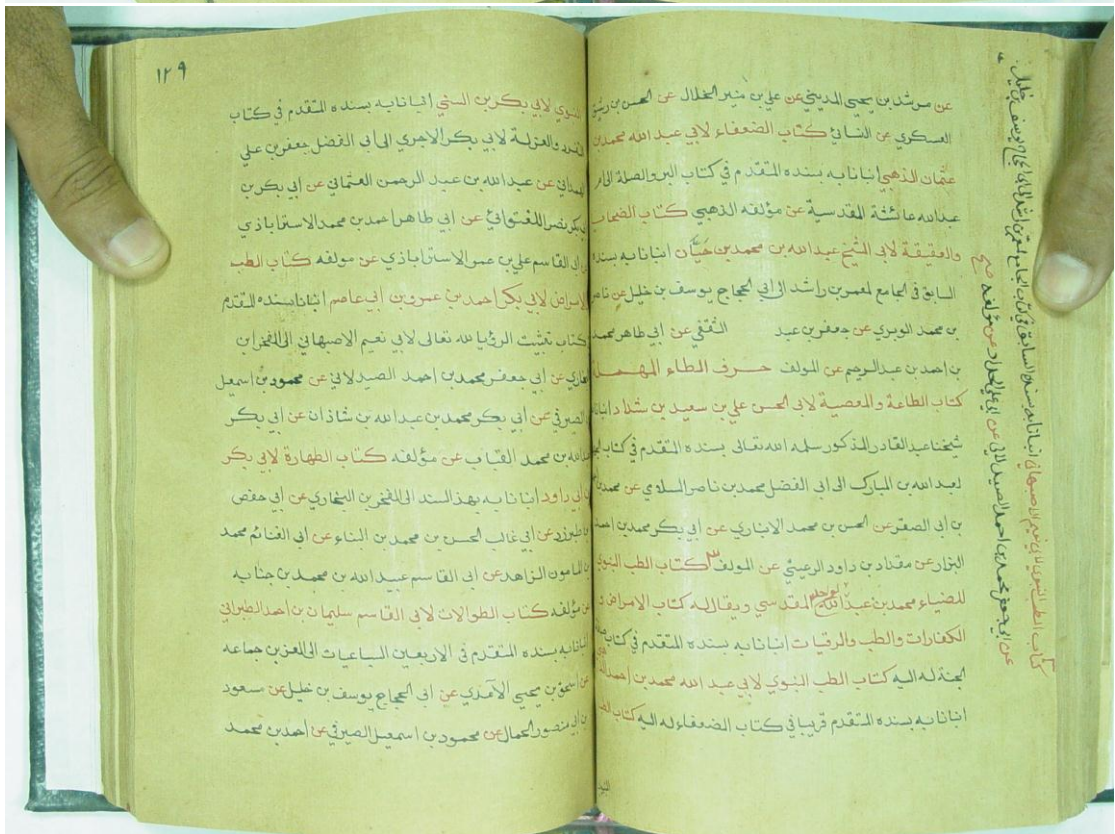 عن مرشد بن يحيى المديني عن علي بن منير الخلال عن الحسن بن رشيق
العسكري عن النسائي كتاب الضعفاء لابي عبد الله محمد بن
عثمان الذهبي انبانا به بسنده المتقدم في كتاب البر والصلة الى ام
عبد الله عائشة المقدسية عن مؤلفه الذهبي كتاب الضحايا
والعقيقة لابي الشيخ عبد الله بن محمد بن حيان انبانا به بسنده
السابق في الجامع لمعمر بن راشد الى ابي الحجاج يوسف بن خليل عن ناصر
بن محمد الويرى عن جعفر بن عبد الثقفي عن ابي طاهر محمد
بن احمد بن عبد الرحيم عن المولف حرف الطاء المهملة
كتاب الطاعة والمعصية لابي الحسن علي بن سعيد بن شداد انبانا
شيخنا عبد القادر المذكور سلمه الله تعالى بسنده المتقدم في كتاب
لعبد الله بن المبارك الى ابي الفضل محمد بن ناصر السلامي عن محمد
بن ابي الصقر عن الحسن بن محمد الانباري عن ابي بكر محمد بن احمد
البزار عن مقداد بن داود الرعيني عن المولف كتاب الطب النبوي
للضياء محمد بن عبد الواحد المقدسي ويقال له كتاب الامراض و
الكفارات والطب والرقيات انبانا به بسنده المتقدم في كتاب صفة
الجنة له اليه كتاب الطب النبوي لابي عبد الله محمد بن احمد
انبانا به بسنده المتقدم قريبا في كتاب الضعفاء له اليه كتاب الطب
كتاب الطب النبوي لابي نعيم الاصبهاني انبانا به بسنده السابق في كتاب الجامع لمعمر بن راشد الى ابي الحجاج يوسف بن خليل
عن ابي جعفر محمد بن احمد الصيدلاني عن ابي علي الحداد عن مؤلفه صح
١٢٩
النبوي لابي بكر بن السني انبانا به بسنده المتقدم في كتاب
التفرد والعزلة لابي بكر الاجري الى ابي الفضل جعفر بن علي
الهمداني عن عبد الله بن عبد الرحمن العثماني عن ابي بكر بن
نصر عن ابي طاهر احمد بن محمد الاستراباذي
ابي القاسم علي بن عمر الاستراباذي عن مولفه كتاب الطب
والامراض لابي بكر احمد بن عمرو بن ابي عاصم انبانا بسنده المتقدم
كتاب تثبيت الرؤيا لله تعالى لابي نعيم الاصبهاني الى الفخر ابن
البخاري عن ابي جعفر محمد بن احمد الصيدلاني عن محمود بن اسمعيل
الصيرفي عن ابي بكر محمد بن عبد الله بن شاذان عن ابي بكر
عبد الله بن محمد القباب عن مؤلفه كتاب الطهارة لابي بكر
بن ابي داود انبانا به بهذ السند الى الفخر بن البخاري عن ابي حفص
بن طبرزد عن ابي غالب الحسن بن محمد بن البناء عن ابي الغنائم محمد
بن المامون الزاهد عن ابي القاسم عبيد الله بن محمد بن حبابه
عن مؤلفه كتاب الطوالات لابي القاسم سليمان بن احمد الطبراني
انبانا به بسنده المتقدم في الاربعين السباعيات الى العز بن جماعه
عن اسحق بن يحيى الآمدي عن ابي الحجاج يوسف بن خليل عن مسعود
بن ابي منصور الجمال عن محمود بن اسمعيل الصيرفي عن احمد بن محمد